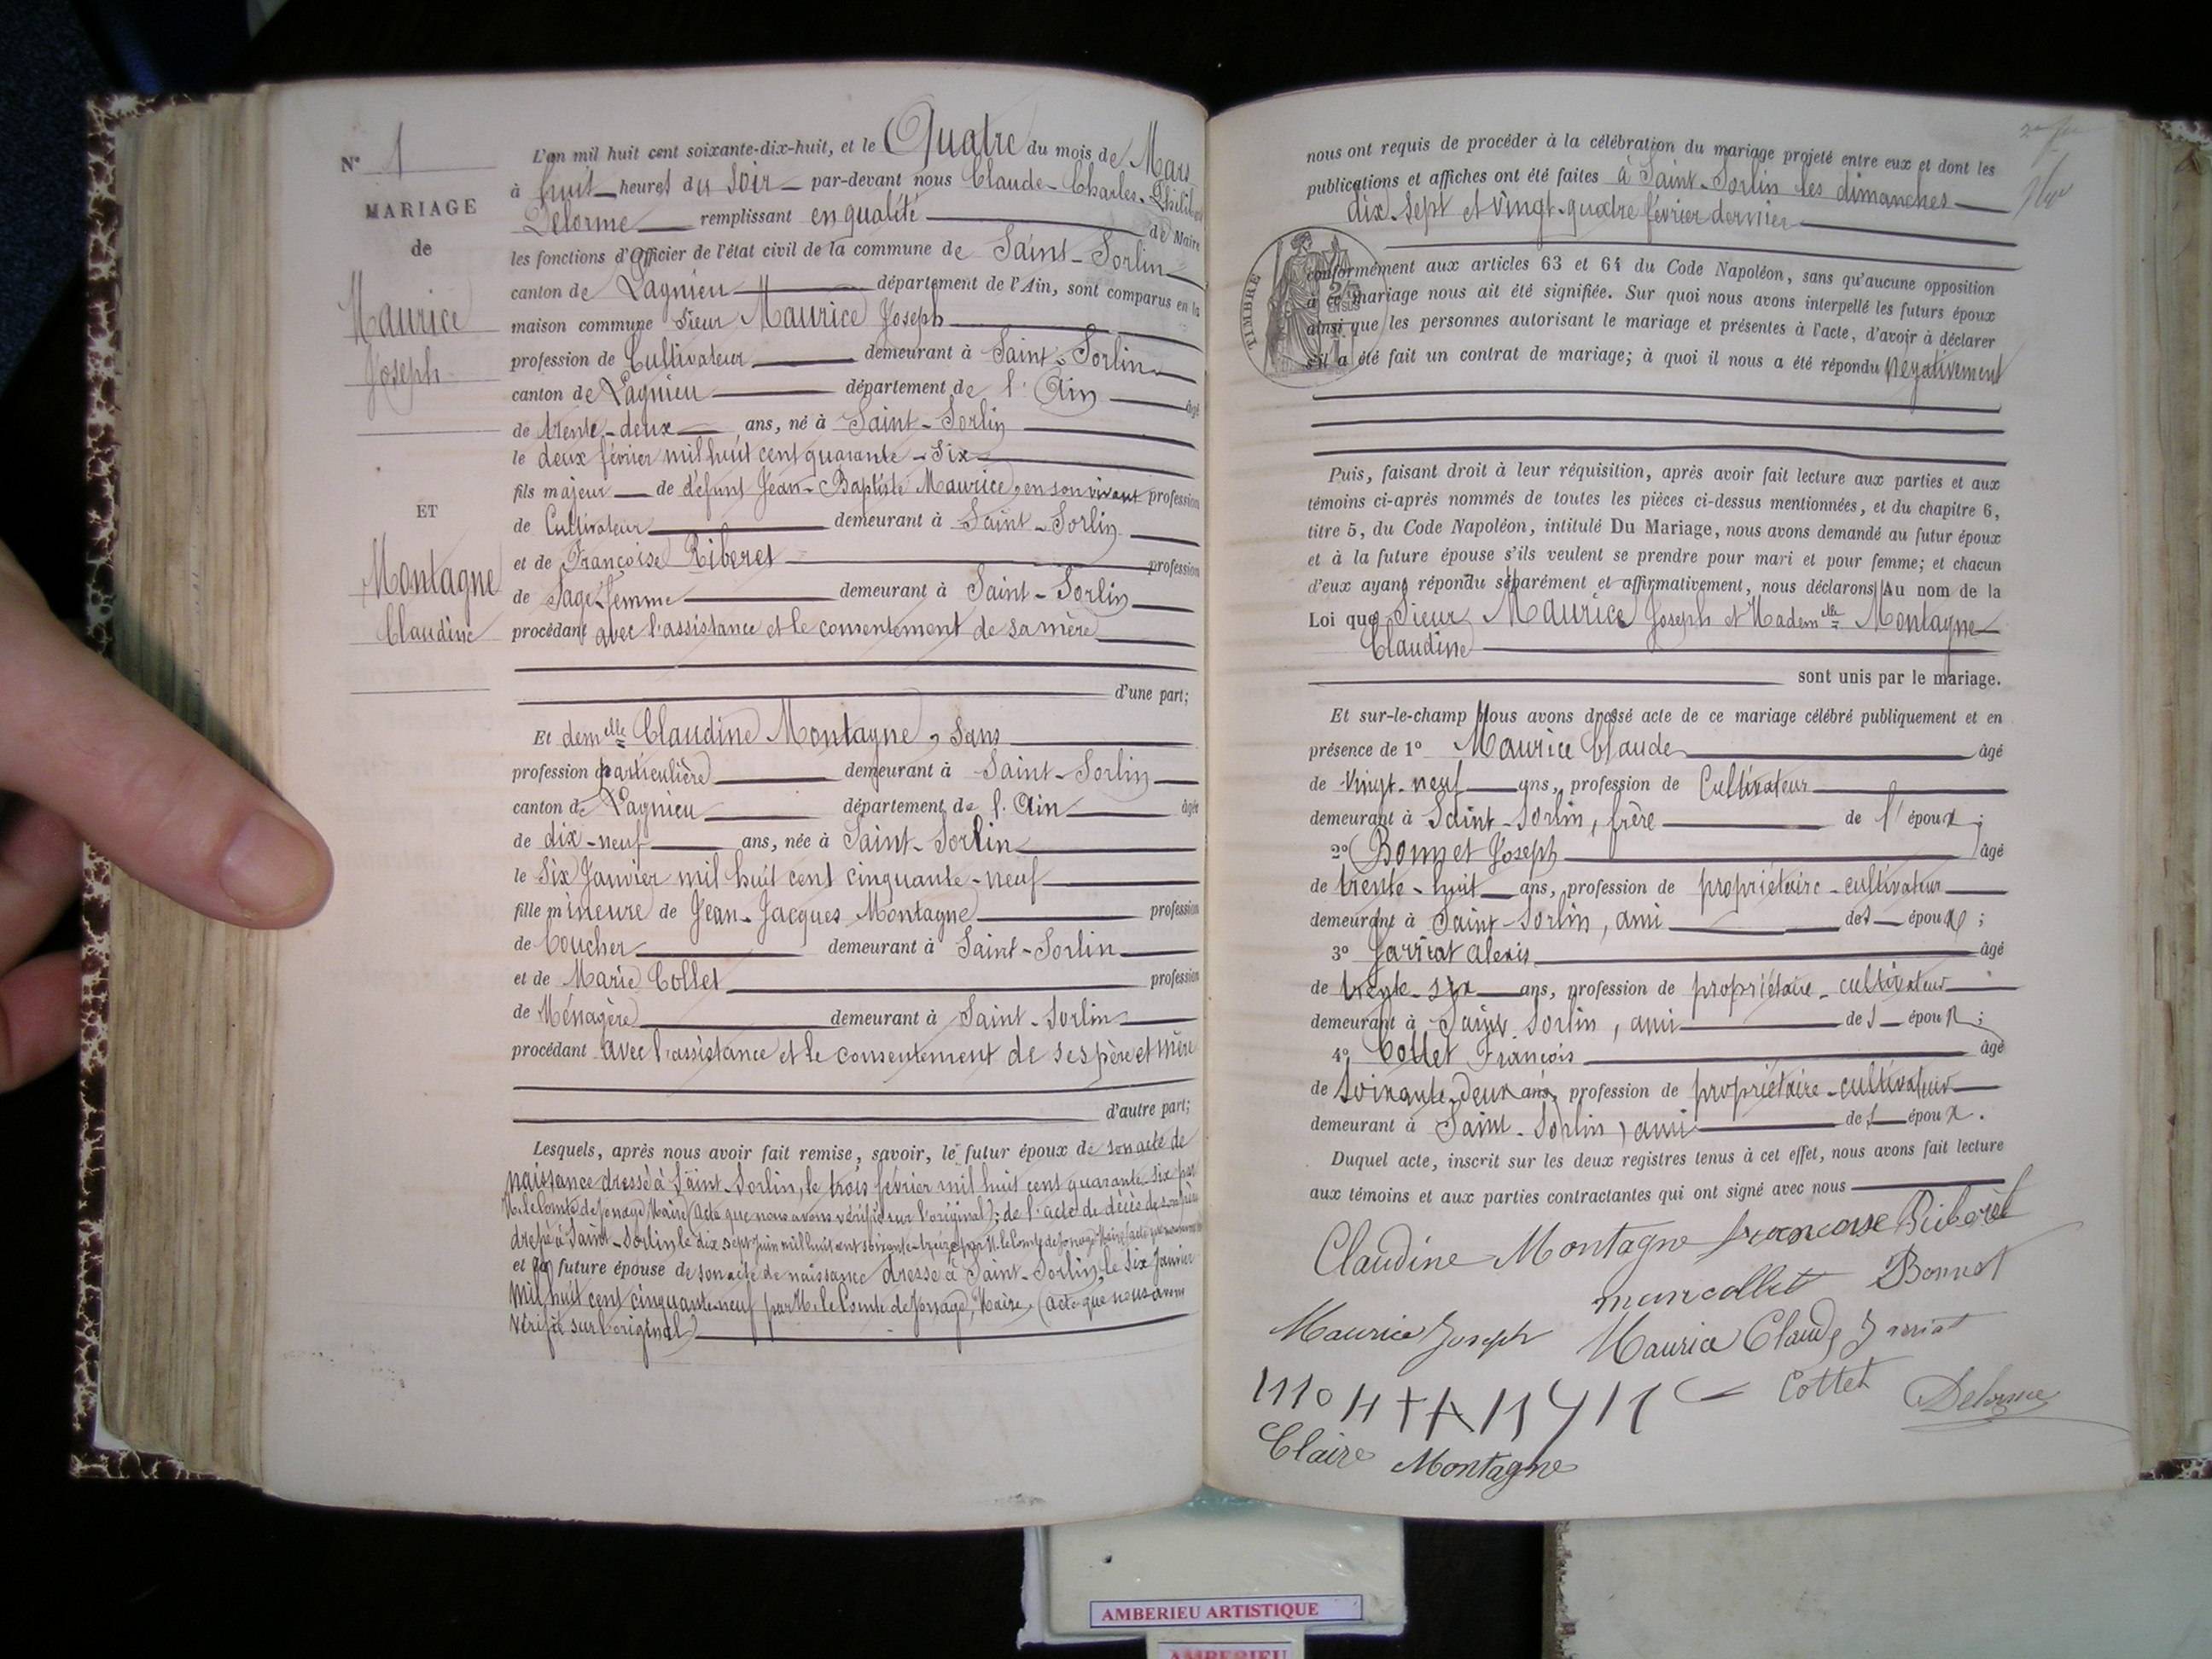 N° 1
MARIAGE
de
Maurice
Joseph
ET
Montagne
Claudine
L'an mil huit cent soixante-dix-huit, et le Quatre du mois de Mars
à huit heures du soir par-devant nous Claude-Charles-Philibert
Delorme remplissant en qualité de Maire
les fonctions d'Officier de l'état civil de la commune de Saint-Sorlin
canton de Lagnieu département de l'Ain, sont comparus en la
maison commune Sieur Maurice Joseph
profession de Cultivateur demeurant à Saint-Sorlin
canton de Lagnieu département de l'Ain âgé
de trente-deux ans, né à Saint-Sorlin
le deux février mil huit cent quarante-six
fils majeur de défunt Jean-Baptiste Maurice, en son vivant profession
de Cultivateur demeurant à Saint-Sorlin
et de Françoise Riberet profession
de Sage-femme demeurant à Saint-Sorlin
procédant avec l'assistance et le consentement de sa mère
d'une part;
Et demelle Claudine Montagne, sans
profession particulière demeurant à Saint-Sorlin
canton de Lagnieu département de l'Ain âgée
de dix-neuf ans, née à Saint-Sorlin
le Six Janvier mil huit cent cinquante-neuf
fille mineure de Jean-Jacques Montagne profession
de Coucher demeurant à Saint-Sorlin
et de Marie Collet profession
de Ménagère demeurant à Saint-Sorlin
procédant avec l'assistance et le consentement de ses père et mère
d'autre part;
Lesquels, après nous avoir fait remise, savoir, le futur époux de son acte de
naissance dressé à Saint-Sorlin, le trois février mil huit cent quarante-six par
M. le Comte de Jonage, Maire (acte que nous avons vérifié sur l'original); de l'acte de décès de son père
dressé à Saint-Sorlin le dix sept Juin mil huit cent soixante-treize par M. le Comte de Jonage Maire (acte que nous
et la future épouse de son acte de naissance dressé à Saint-Sorlin, le six Janvier
mil huit cent cinquante-neuf par M. le Comte de Jonage, Maire, (acte que nous avons
vérifié sur l'original)
nous ont requis de procéder à la célébration du mariage projeté entre eux et dont les
publications et affiches ont été faites à Saint-Sorlin les dimanches
dix-sept et vingt-quatre février dernier
TIMBRE
conformément aux articles 63 et 64 du Code Napoléon, sans qu'aucune opposition
à ce mariage nous ait été signifiée. Sur quoi nous avons interpellé les futurs époux
ainsi que les personnes autorisant le mariage et présentes à l'acte, d'avoir à déclarer
s'il a été fait un contrat de mariage; à quoi il nous a été répondu Négativement
Puis, faisant droit à leur réquisition, après avoir fait lecture aux parties et aux
témoins ci-après nommés de toutes les pièces ci-dessus mentionnées, et du chapitre 6,
titre 5, du Code Napoléon, intitulé Du Mariage, nous avons demandé au futur époux
et à la future épouse s'ils veulent se prendre pour mari et pour femme; et chacun
d'eux ayant répondu séparément et affirmativement, nous déclarons Au nom de la
Loi que Sieur Maurice Joseph et Mademlle Montagne
Claudine
sont unis par le mariage.
Et sur-le-champ Nous avons dressé acte de ce mariage célébré publiquement et en
présence de 1° Maurice Claude âgé
de vingt-neuf ans, profession de Cultivateur
demeurant à Saint-Sorlin, frère de l'époux;
2° Bonnet Joseph âgé
de trente-huit ans, profession de propriétaire-cultivateur
demeurant à Saint-Sorlin, ami des époux;
3° Jarriat Alexis âgé
de trente-six ans, profession de propriétaire-cultivateur
demeurant à Saint Sorlin, ami des époux;
4° Collet François âgé
de soixante-deux ans, profession de propriétaire-cultivateur
demeurant à Saint-Sorlin, ami des époux.
Duquel acte, inscrit sur les deux registres tenus à cet effet, nous avons fait lecture
aux témoins et aux parties contractantes qui ont signé avec nous
Claudine Montagne françoise Riberet
marie collet Bonnet
Maurice Joseph Maurice Claude Jarriat
Cottet Delorme
Claire Montagne
AMBERIEU ARTISTIQUE
AMBERIEU